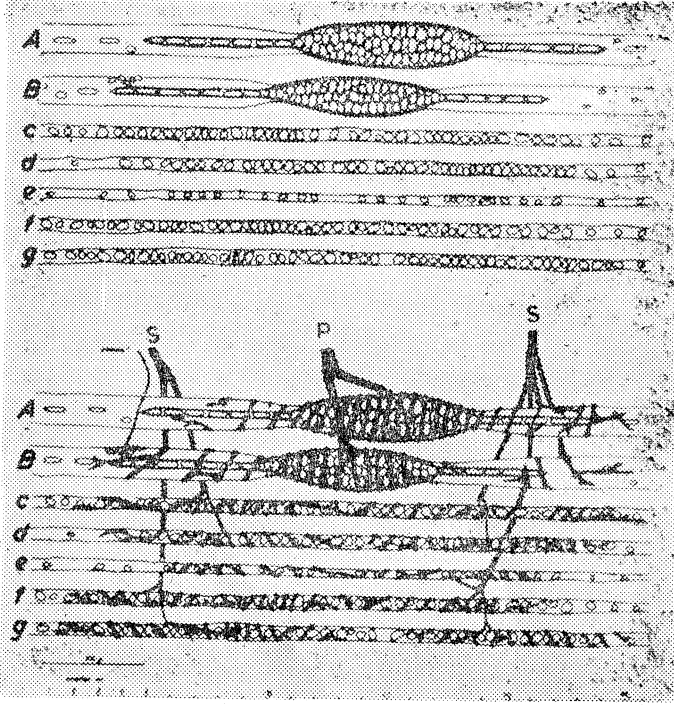 A
B
c
d
e
f
g
S P S
A
B
c
d
e
f
g